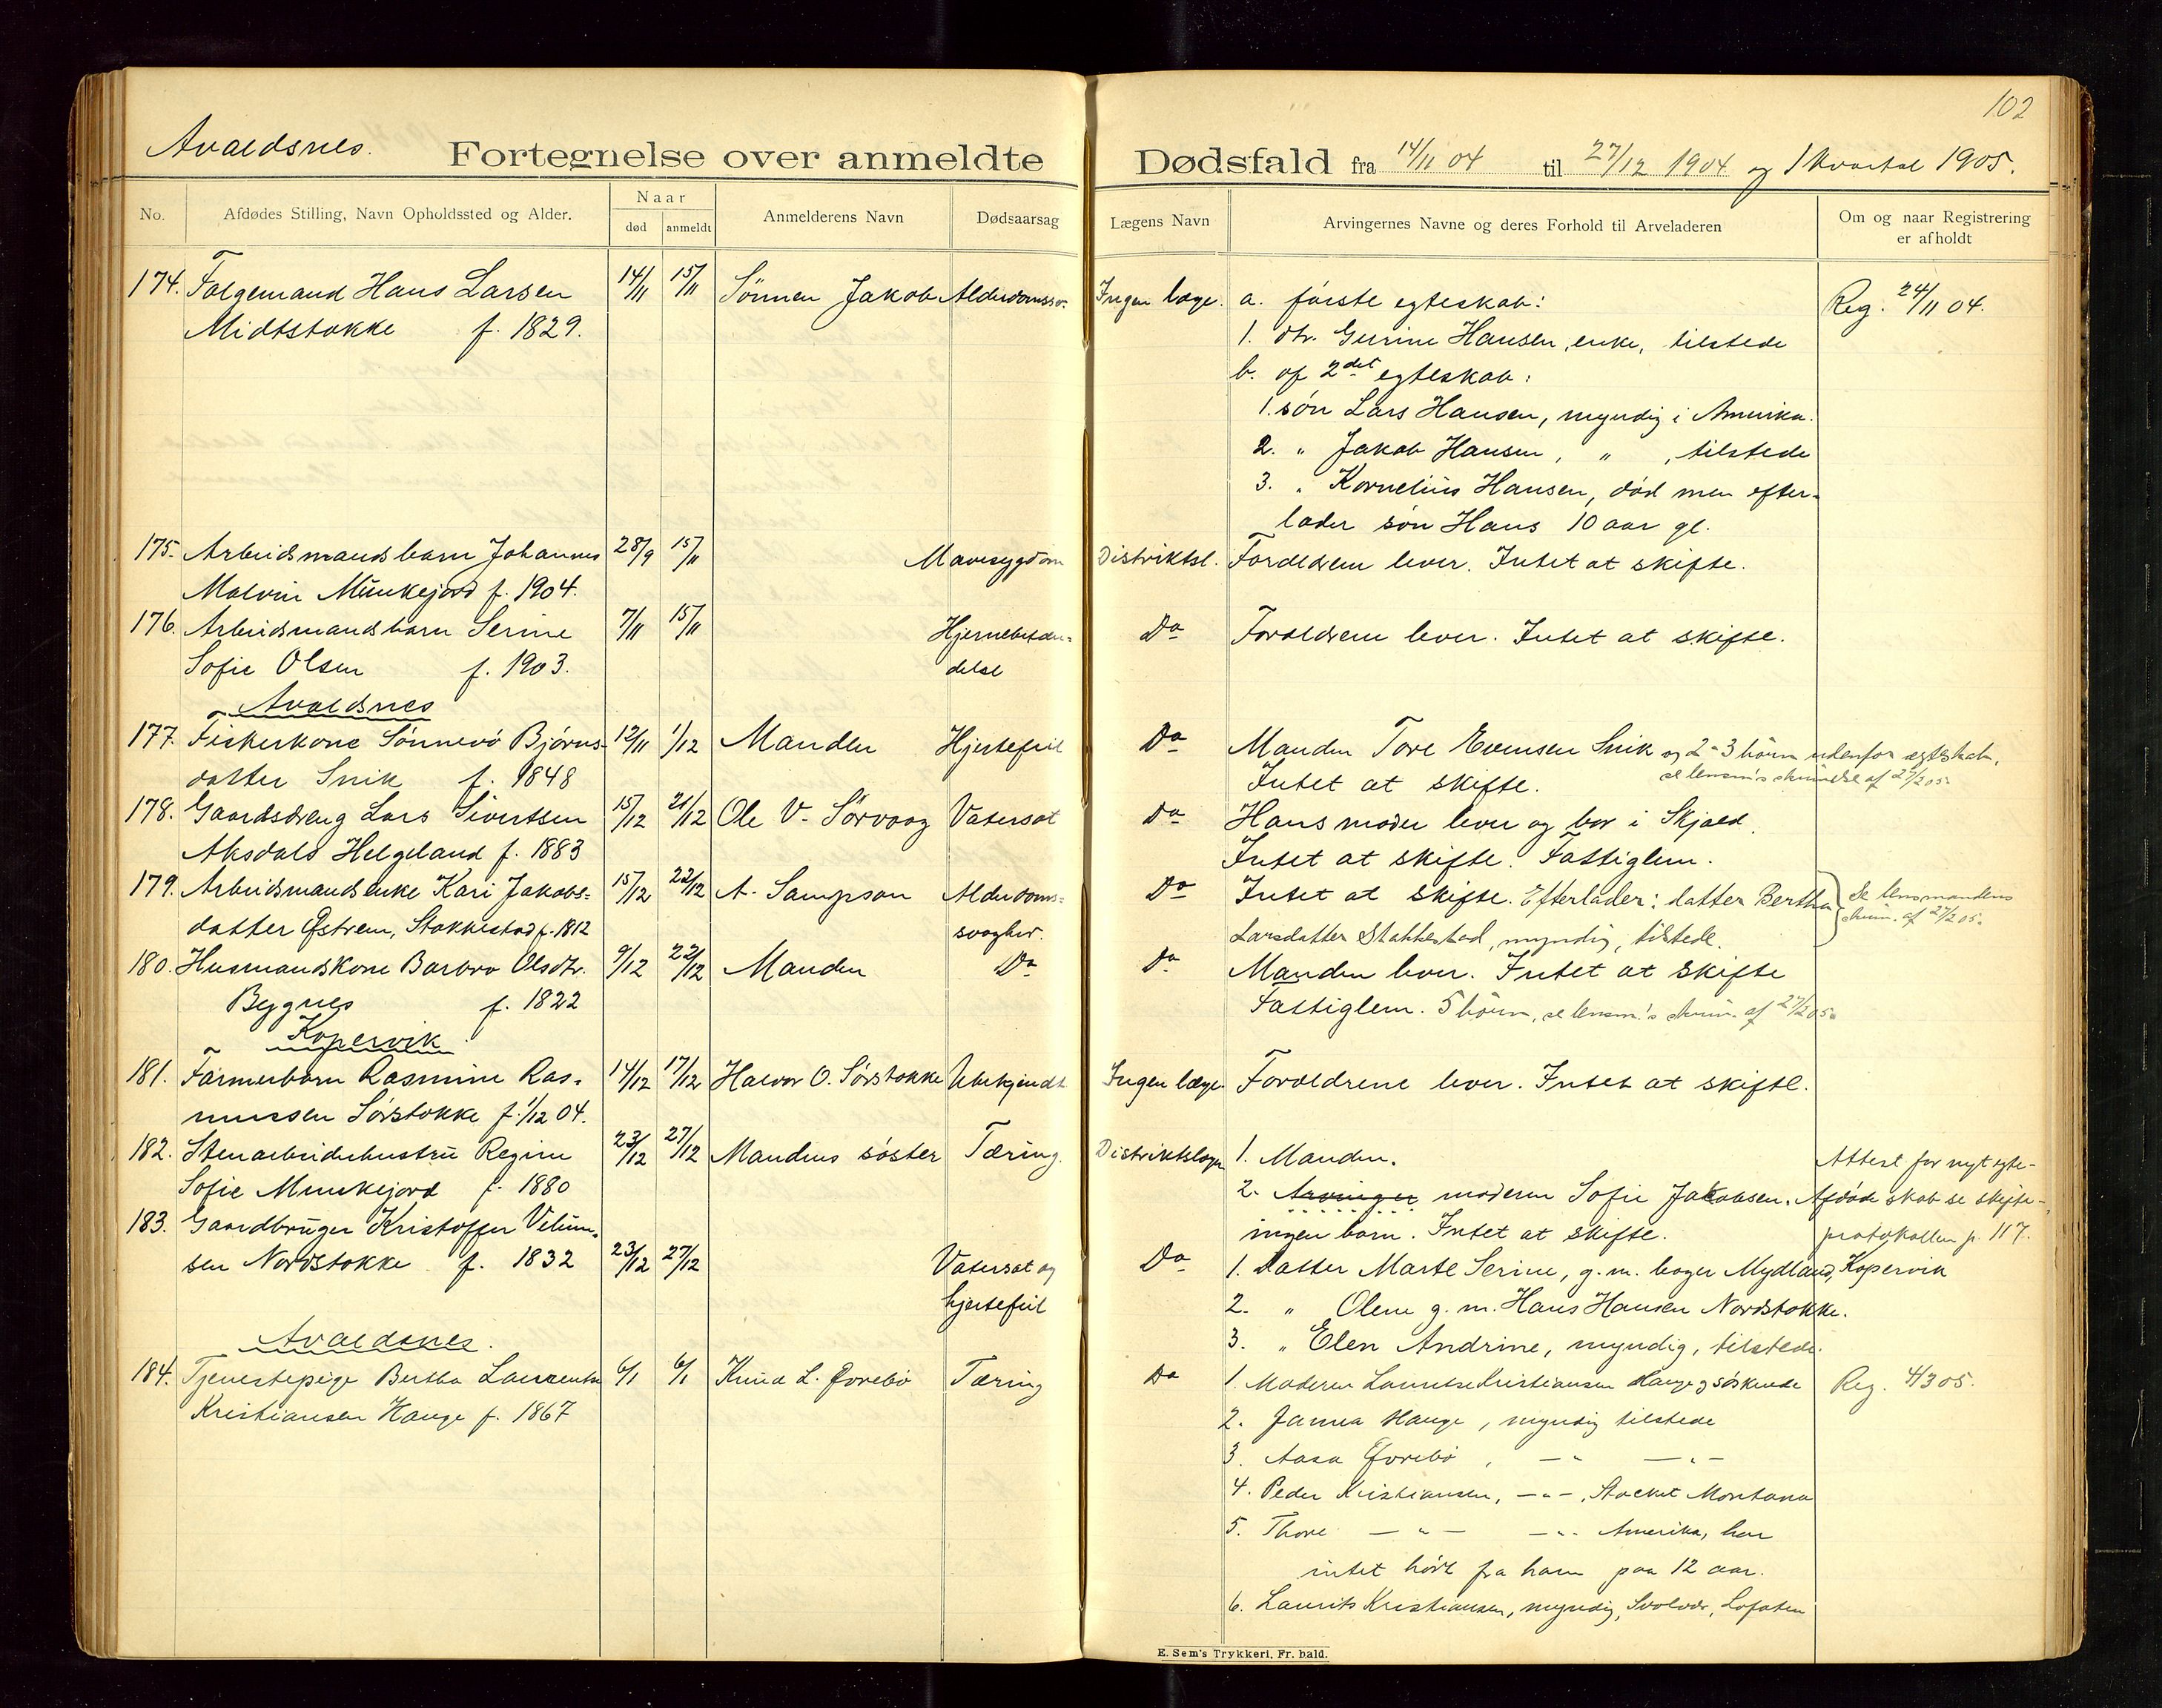 102
Avaldsnes.
Fortegnelse over anmeldte
Dødsfald fra 14/11 04 til 27/12 1904 og 1 kvartal 1905.
No.
Afdødes Stilling, Navn Opholdssted og Alder.
Naar
død
anmeldt
Anmelderens Navn
Dødsaarsag
Lægens Navn
Arvingernes Navne og deres Forhold til Arveladeren
Om og naar Registrering
er afholdt
174. Følgemand Hans Larsen 14/11 15/11 Sønnen Jakob Alderdomssv. Ingen læge. a. første egteskab: Reg. 24/11 04.
Midtstokke f. 1829. 1. dtr. Gurine Hansen, enke, tilstede
b. af 2det egteskab:
1. søn Lars Hansen, myndig i Amerika.
2. " Jakob Hansen, " , tilstede
3. " Kornelius Hansen, død men efter-
lader søn Hans 10 aar gl.
175. Arbeidsmandsbarn Johannes 28/9 15/11 Mavesygdom Distriktsl. Forældrene lever. Intet at skifte.
Malvin Munkejord f. 1904.
176. Arbeidsmandsbarn Serine 7/11 15/11 Hjernebetæn- Do Forældrene lever. Intet at skifte.
Sofie Olsen f. 1903. delse
Avaldsnes
177. Fiskerkone Sønnevø Bjørns- 12/11 1/12 Manden Hjertefeil Do Manden Tore Evensen Snik og 2-3 børn udenfor egteskab,
datter Snik f. 1848 Intet at skifte. se lensm's skrivelse af 27/2 05.
178. Gaardsdreng Lars Sivertsen 15/12 21/12 Ole V. Sørvaag Vatersot Do Hans moder lever og bor i Skjold.
Aksdals Helgeland f. 1883 Intet at skifte. Fattiglem.
179. Arbeidsmandsenke Kari Jakobs- 15/12 22/12 A. Sampson Alderdoms- Do Intet at skifte. Efterlader: datter Bertha se lensmandens
datter Østrem, Stokkestad f. 1812 svaghed. Larsdatter Stakkestad, myndig, tilstede. skriv. af 27/2 05.
180. Husmandskone Barbro Olsdtr. 9/12 22/12 Manden Do Do Manden lever. Intet at skifte
Bygnes f. 1822 Fattiglem. 5 børn, se lensm.'s skriv. af 27/2 05.
Kopervik
181. Farmerbarn Rasmine Ras- 14/12 17/12 Halvor O. Sørstokke Ubekjendt Ingen læge Forældrene lever. Intet at skifte.
mussen Sørstokke f. 1/12 04.
182. Stenarbeiderhustru Regine 23/12 27/12 Mandens søster Tæring. Distriktslægen 1. Manden. Attest for nyt egte-
Sofie Munkejord f. 1880 2. Arvinger moderen Sofie Jakobsen. Afdøde skab se skifte-
ingen barn. Intet at skifte. protokollen p. 117.
183. Gaardbruger Kristoffer Velum-
sen Nordstokke f. 1832 23/12 27/12 Vatersot og Do 1. Datter Marte Serine, g. m. bager Mydland, Kopervik
hjertefeil 2. " Olene g. m. Hans Hansen Nordstokke.
Avaldsnes. 3. " Elen Andrine, myndig, tilstede.
184. Tjenestepige Bertha Laurentse 6/1 6/1 Knud L. Øvrebø Tæring Do 1. Moderen Lauretse Kristiansen Hauge og søskende Reg. 4/3 05.
Kristiansen Hauge f. 1867 2. Janna Hauge, myndig tilstede
3. Aasa Øvrebø, — " — " —
4. Peder Kristiansen, — " —, Stocket Montana
5. Thore — " — — " — Amerika, har
intet hørt fra ham paa 12 aar.
6. Laurits Kristiansen, myndig, Svolvær, Lofoten
E. Sem's Trykkeri, Fr. hald.